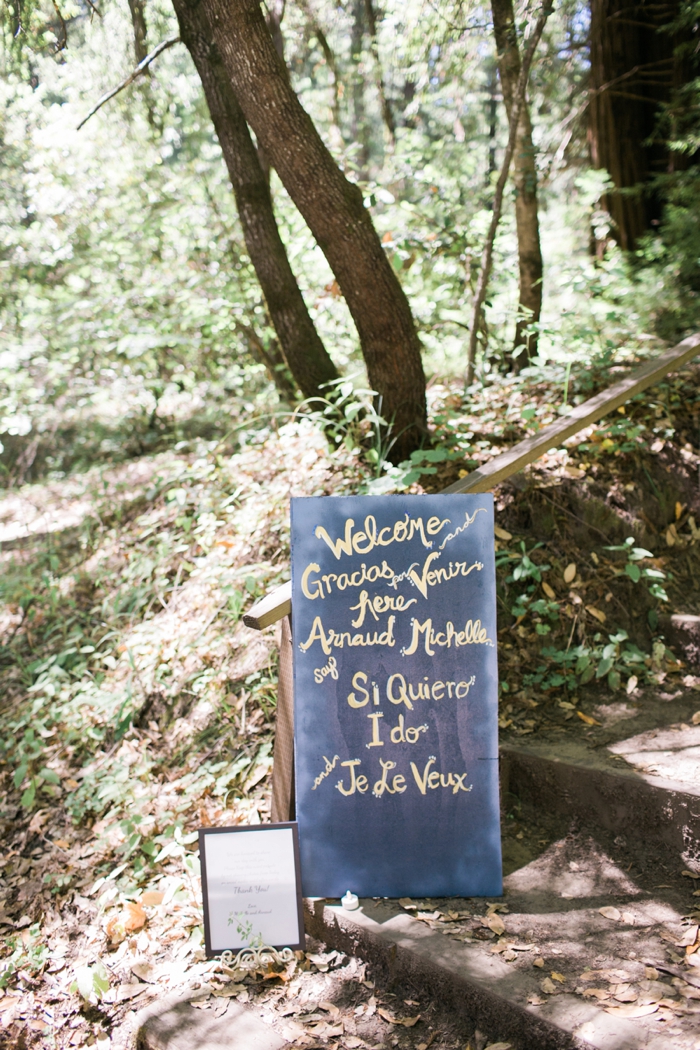 Welcome and
Gracias for Venir
here
Arnaud Michelle
say
Si Quiero
I do
and Je Le Veux
Thank You!